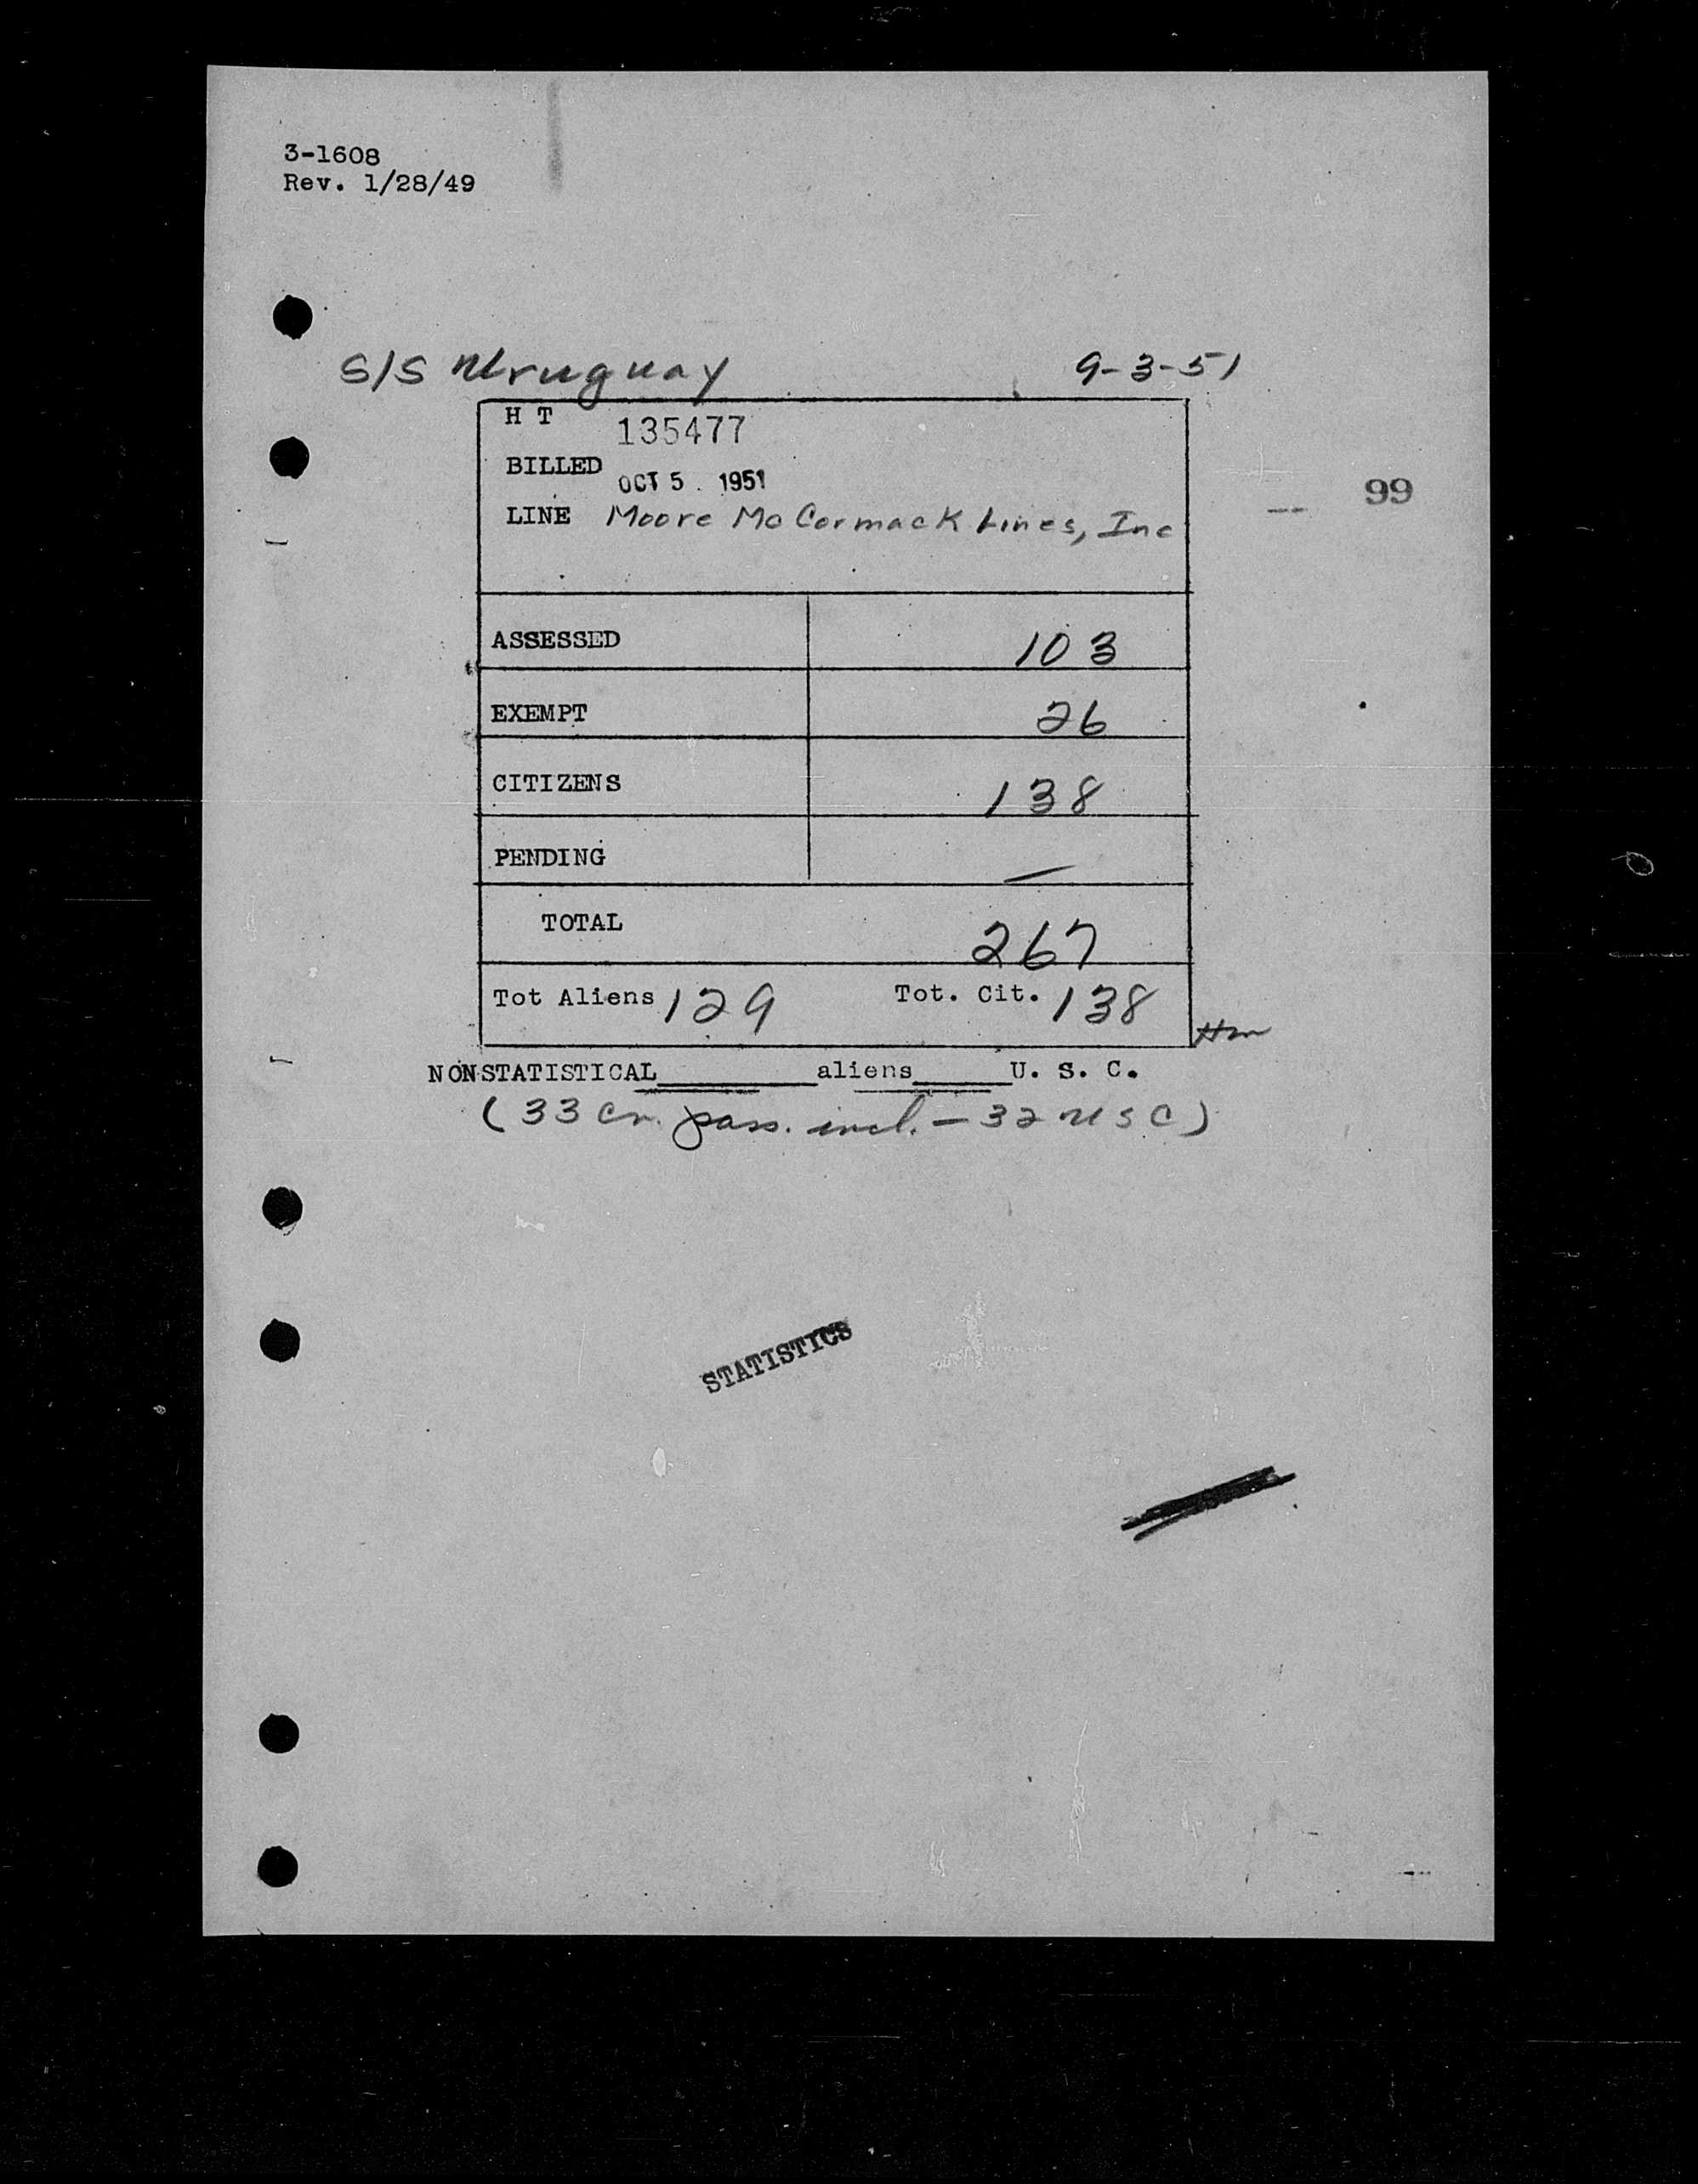 3-1608
Rev. 1/28/49
S/S Uruguay 9-3-51
H T 135477
BILLED OCT 5 1951
99
LINE Moore McCormack Lines, Inc
ASSESSED 103
EXEMPT 26
CITIZENS 138
PENDING —
TOTAL 267
Tot Aliens 129 Tot. Cit. 138
NONSTATISTICAL______aliens____U. S. C.
(33 cr. pass. incl. — 32 USC)
STATISTICS